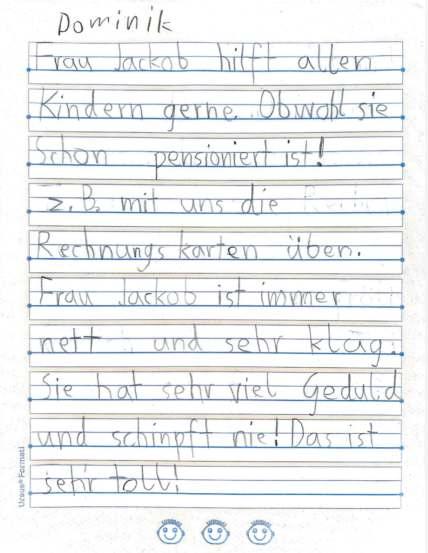 Dominik
Frau Jackob hilft allen
Kindern gerne. Obwohl sie
Schon pensioniert ist!
Z.B. mit uns die
Rechnungskarten üben.
Frau Jackob ist immer
nett und sehr klug.
Sie hat sehr viel Geduld
und schinpft nie! Das ist
sehr toll!
Ursus® Format